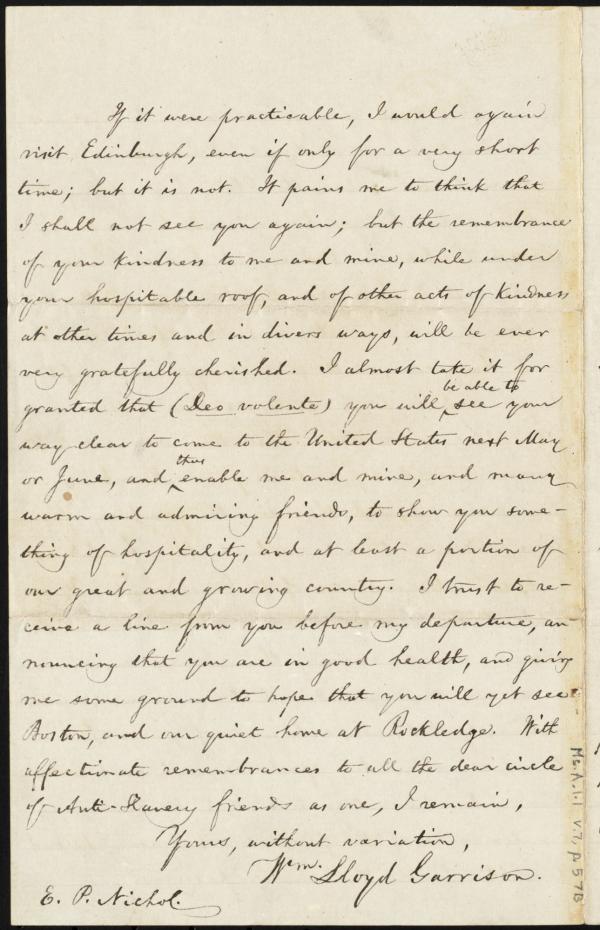 If it were practicable, I would again
visit Edinburgh, even if only for a very short
time; but it is not. It pains me to think that
I shall not see you again; but the remembrance
of your kindness to me and mine, while under
your hospitable roof, and of other acts of kindness
at other times and in divers ways, will be ever
very gratefully cherished. I almost take it for
granted that (Deo volente) you will be able to see your
way clear to come to the United States next May
or June, and thus enable me and mine, and many
warm and admiring friends, to show you some-
thing of hospitality, and at least a portion of
our great and growing country. I trust to re-
ceive a line from you before my departure, an-
nouncing that you are in good health, and giving
me some ground to hope that you will yet see
Boston, and our quiet home at Rockledge. With
affectionate remembrances to all the dear circle
of Anti-Slavery friends as one, I remain,
Yours, without variation,
Wm. Lloyd Garrison.
E. P. Nichol.
Ms. A. 1.1 v. 7, p. 57B